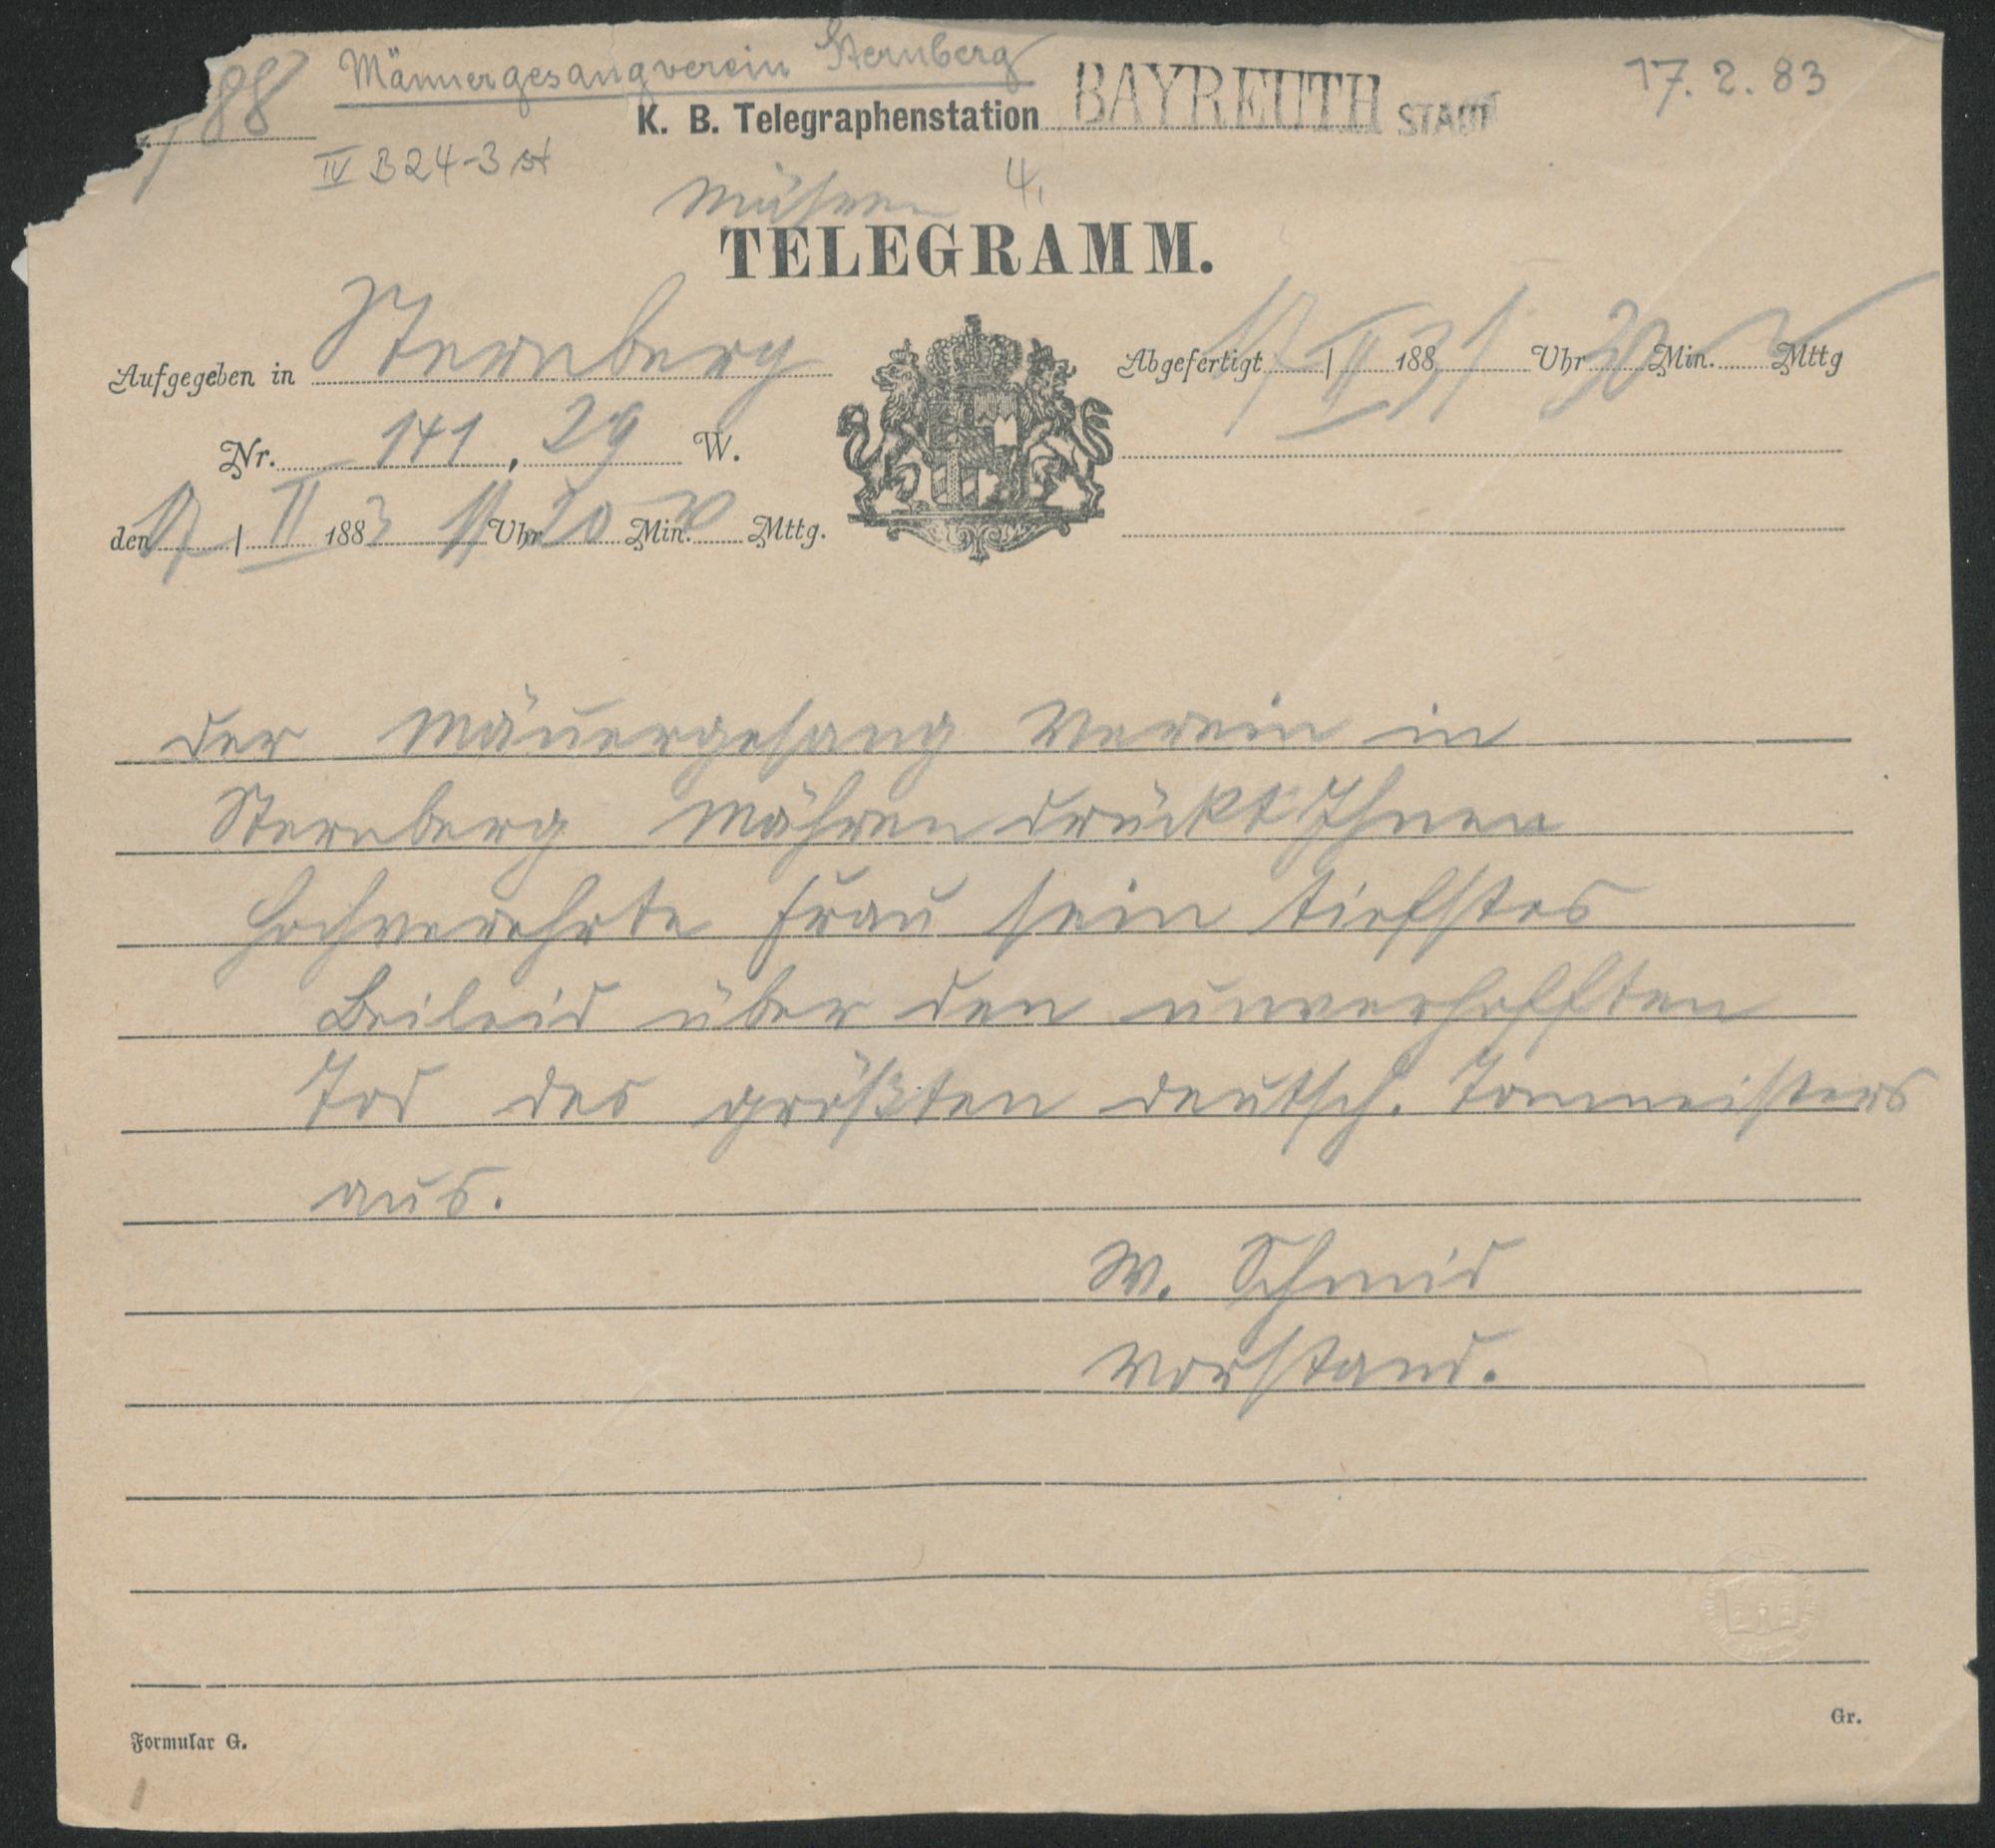 88 Männergesangverein Sternberg 17.2.83
K. B. Telegraphenstation BAYREUTH STADT
IV B 24-3
Mähren 4.
TELEGRAMM.
Aufgegeben in Sternberg
Abgefertigt 17 / II 1883 1 Uhr 30 Min. Mttg
Nr. 141, 29 W.
den 17 / II 1883 11 Uhr 50 Min. Mttg.
Der Männergesang Verein in
Sternberg Mähren drückt Ihnen
hochverehrte Frau sein tiefstes
Beileid über den unverhofften
Tod des größten deutsch. Tonmeisters
aus.
W. Schmid
Vorstand.
Formular G.
Gr.